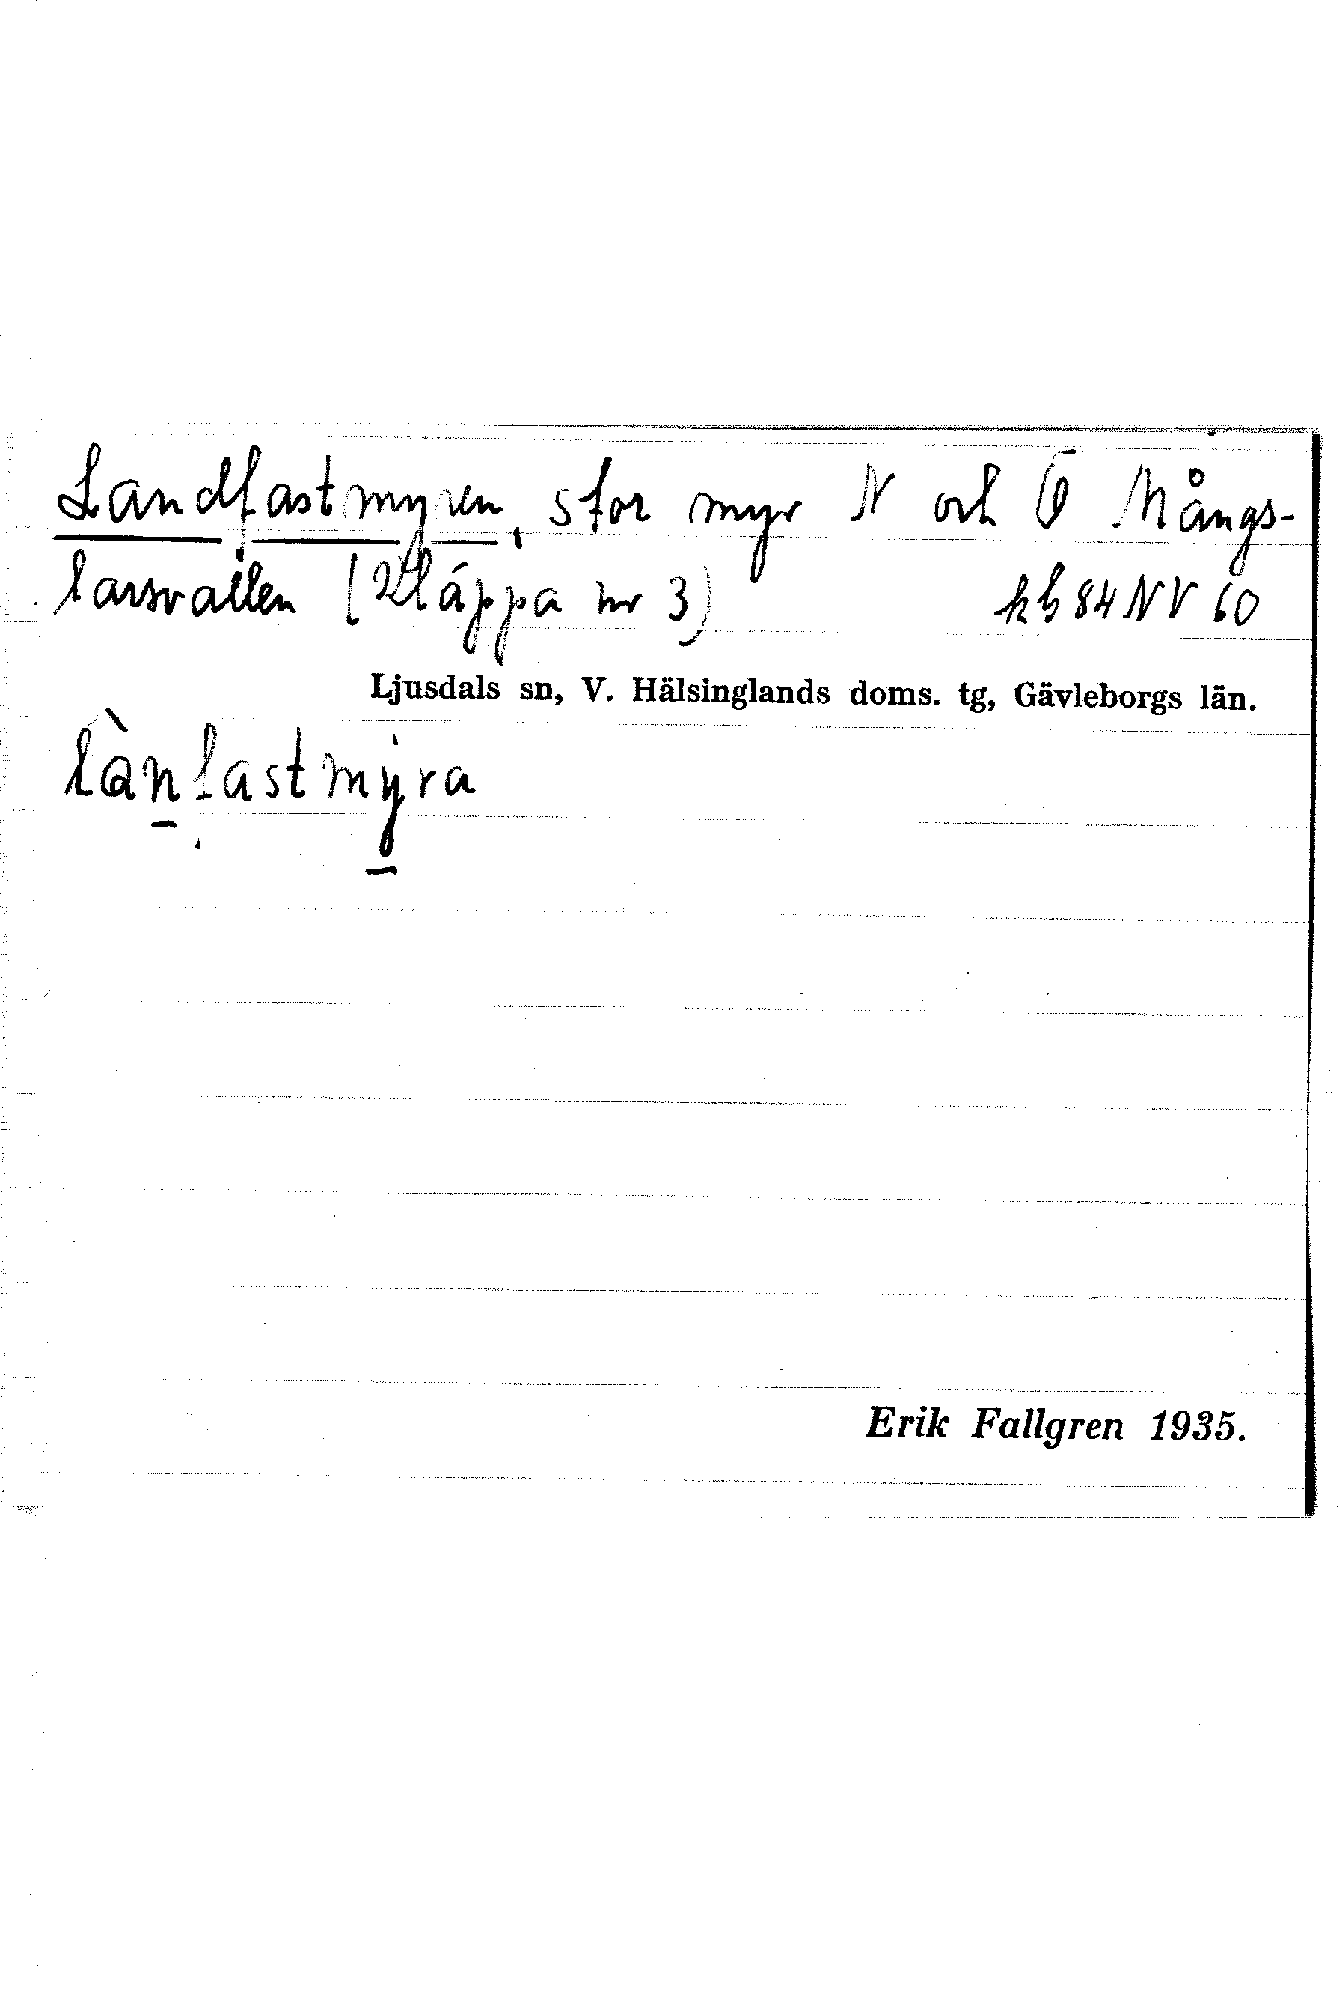 Landfastmyren, stor myr N och Ö Mångs-
larsvallen (Kläppa nr 3) kb 84 NV 60
Ljusdals sn, V. Hälsinglands doms. tg, Gävleborgs län.
lànfastmyra
Erik Fallgren 1935.